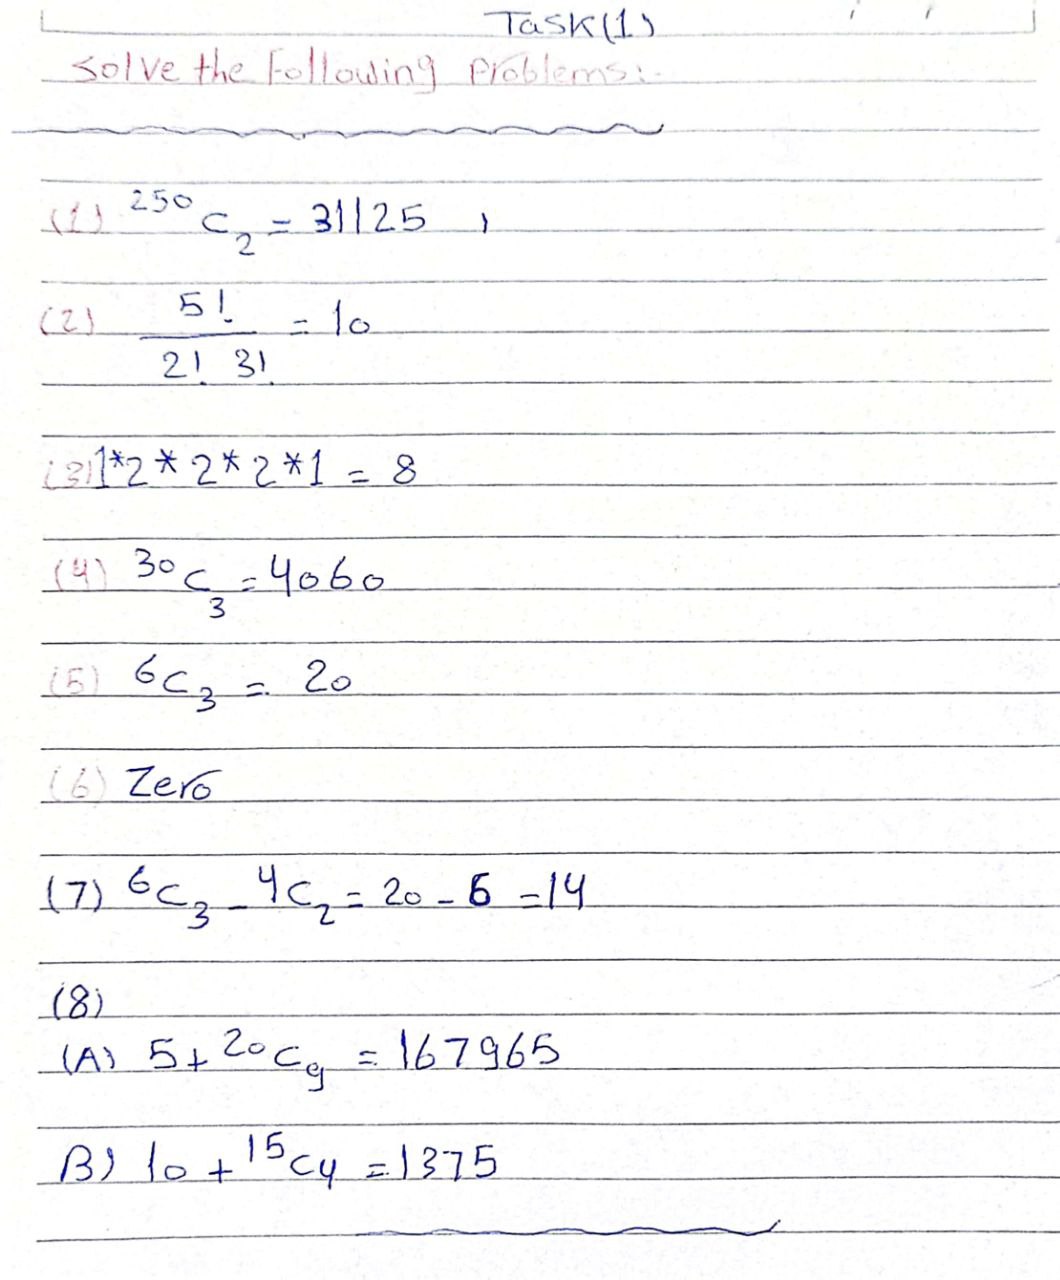 Task(1)
Solve the Following Problems:-
(1) ²⁵⁰C₂ = 31125
(2) 5! / 2! 3! = 10
(3) 1*2*2*2*1 = 8
(4) ³⁰C₃ = 4060
(5) ⁶C₃ = 20
(6) Zero
(7) ⁶C₃ - ⁴C₂ = 20 - 6 = 14
(8)
(A) 5 + ²⁰C₉ = 167965
B) 10 + ¹⁵C₄ = 1375